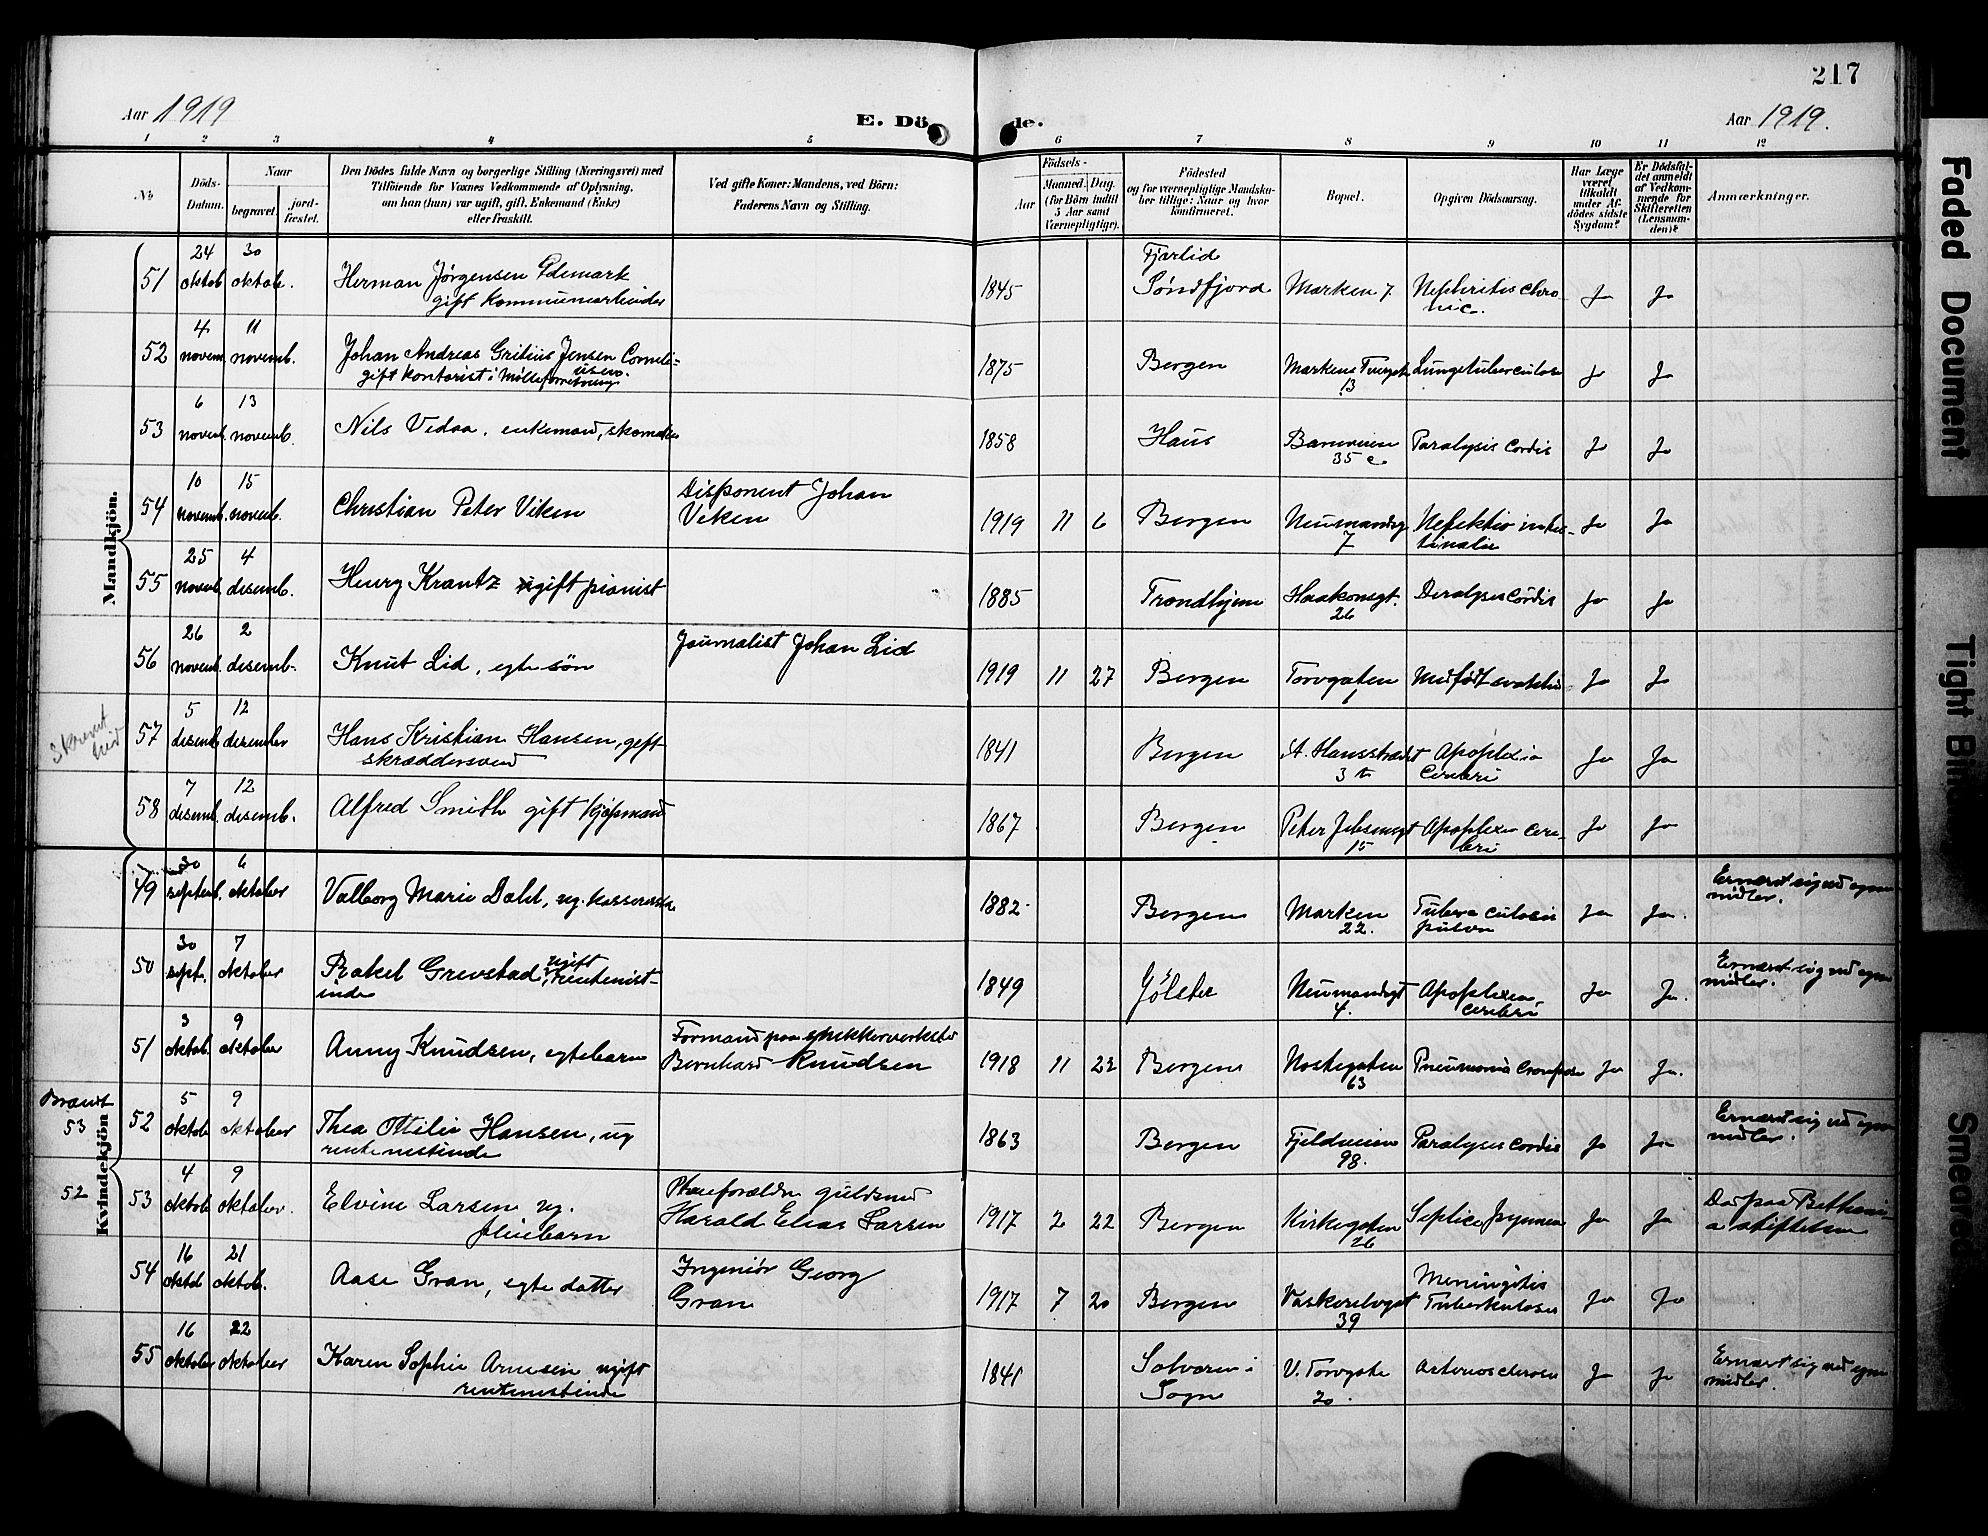 217
Aar 1919
E. Dö
de.
Aar 1919.
1 2 3 4 5 6 7 8 9 10 11 12
No
Döds-Datum.
Naar
begravet.
jord-fæstet.
Den Dödes fulde Navn og borgerlige Stilling (Næringsvei) med
Tilföiende for Voxnes Vedkommende af Oplysning,
om han (hun) var ugift, gift, Enkemand (Enke)
eller fraskilt.
Ved gifte Koner: Mandens, ved Börn:
Faderens Navn og Stilling.
Födsels-
Aar
Maaned. Dag.
(for Börn indtil
5 Aar samt
Værnepligtige).
Födested
og for værnepligtige Mandska-
ber tillige: Naar og hvor
konfirmeret.
Bopæl.
Opgiven Dödsaarsag.
Har Læge
været
tilkaldt
under Af-
dödes sidste
Sygdom?
Er Dödsfal-
det anmeldt
af Vedkom-
mende for
Skifteretten
(Lensman-
den)?
Anmærkninger.
Mandkjön.
51 24 oktob 30 oktob. Herman Jørgensen
gift kommunearbeider 1845 Fjærlid
Søndfjord Marken 7. Nephritis chro-
nic. Ja Ja
52 4 novem. 11 novemb. Johan Andreas Jensen Corneli-
usen.
gift kontorist i Mølleforretning 1875 Bergen Markens Tvergt.
13 Lungetuberculose Ja Ja
53 6 novemb. 13 novemb. Nils Vedaa, enkemand, skomaker 1858 Haus
35 c Paralysis cordis Ja Ja
54 10 novemb. 15 novemb. Christian Peter Viken Disponent Johan
Viken 1919 11 6 Bergen Neumandsgt
7 Ja Ja
55 25 novemb. 4 desemb. Henry Krantz ugift pianist 1885 Trondhjem Haakonsgt.
26 Paralysis cordis Ja Ja
56 26 novemb. 2 desemb. Knut Lid, egte søn Journalist Johan Lid 1919 11 27 Bergen Torvgaten
6 Medfødt svakhet Ja Ja
57 5 desemb 12 desember Hans Kristian Hansen, gift
skræddersvend 1841 Bergen St. Hansstrædet
3 Apoplexia
cerebri Ja Ja
58 7 desemb. 12 desemb. Alfred Smith gift kjøpmand 1867 Bergen Peter Jebsensgt
15 Apoplexia cere-
bri Ja Ja
Kvindekjön
49 30 septemb. 6 oktober Valborg Marie Dahl, ug. kassererske 1882 Bergen Marken
22. Tuberculosis
pulm Ja Ja. Ernært sig ved egne
midler.
50 30 sept. 7 oktober Rakel Grevstad, ugift rentenist-
inde 1849 Jølster Neumandsgt
4. Apoplexia
cerebri Ja Ja. Ernært sig ved egne
midler.
51 3 oktob. 9 oktober Anny Knudsen, egtebarn Formand paa snekkerverksted
Bernhard Knudsen 1918 11 23 Bergen Nostegaten
63 Pneumonia crouposa Ja Ja.
Brændt
53
52 5 oktob 9 oktober Thea Ottilie Hansen, ug
rentenistinde 1863 Bergen Fjeldveien
98. Paralysis cordis Ja Ja Ernært sig ved egne
midler.
52
53 4 oktob 9 oktober. Elvine Larsen ug.
pleiebarn Pleieforældre guldsmed
Harald Elias Larsen 1917 2 22 Bergen Kirkegaten
26 Ja Ja Død paa Bethani-
a stiftelse
54 16 oktob 21 oktob. Aase Gran, egte datter Ingeniør Georg
Gran 1917 7 20 Bergen Vaskerelvgt
39 Meningitis
Tuberkulosa Ja Ja
55 16 oktober 22 oktober Karen Sophie Arnesen ugift
rentenistinde 1841 Solvorn i
Sogn V. Torvgate
20. Arteriosclerose Ja Ja Ernært sig ved egne
midler.
Faded Document
Tight Bin
Smeared